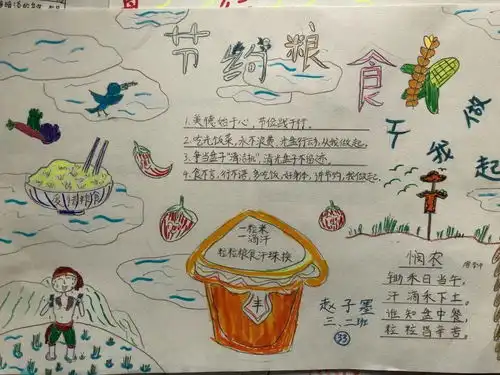 节约粮食
于我做起
1.美德始于心，节俭践于行。
2.吃光饭菜，永不浪费，光盘行动，从我做起。
3.争当盘子"清洁机"，清光盘子不俗迹。
4.食不言，行不语，多吃饭，好身体，讲节约，我做起。
一粒米
一滴汗
粒粒粮食汗珠换
丰
悯农
唐 李绅
锄禾日当午，
汗滴禾下土。
谁知盘中餐，
粒粒皆辛苦。
赵子墨
三、二班
33